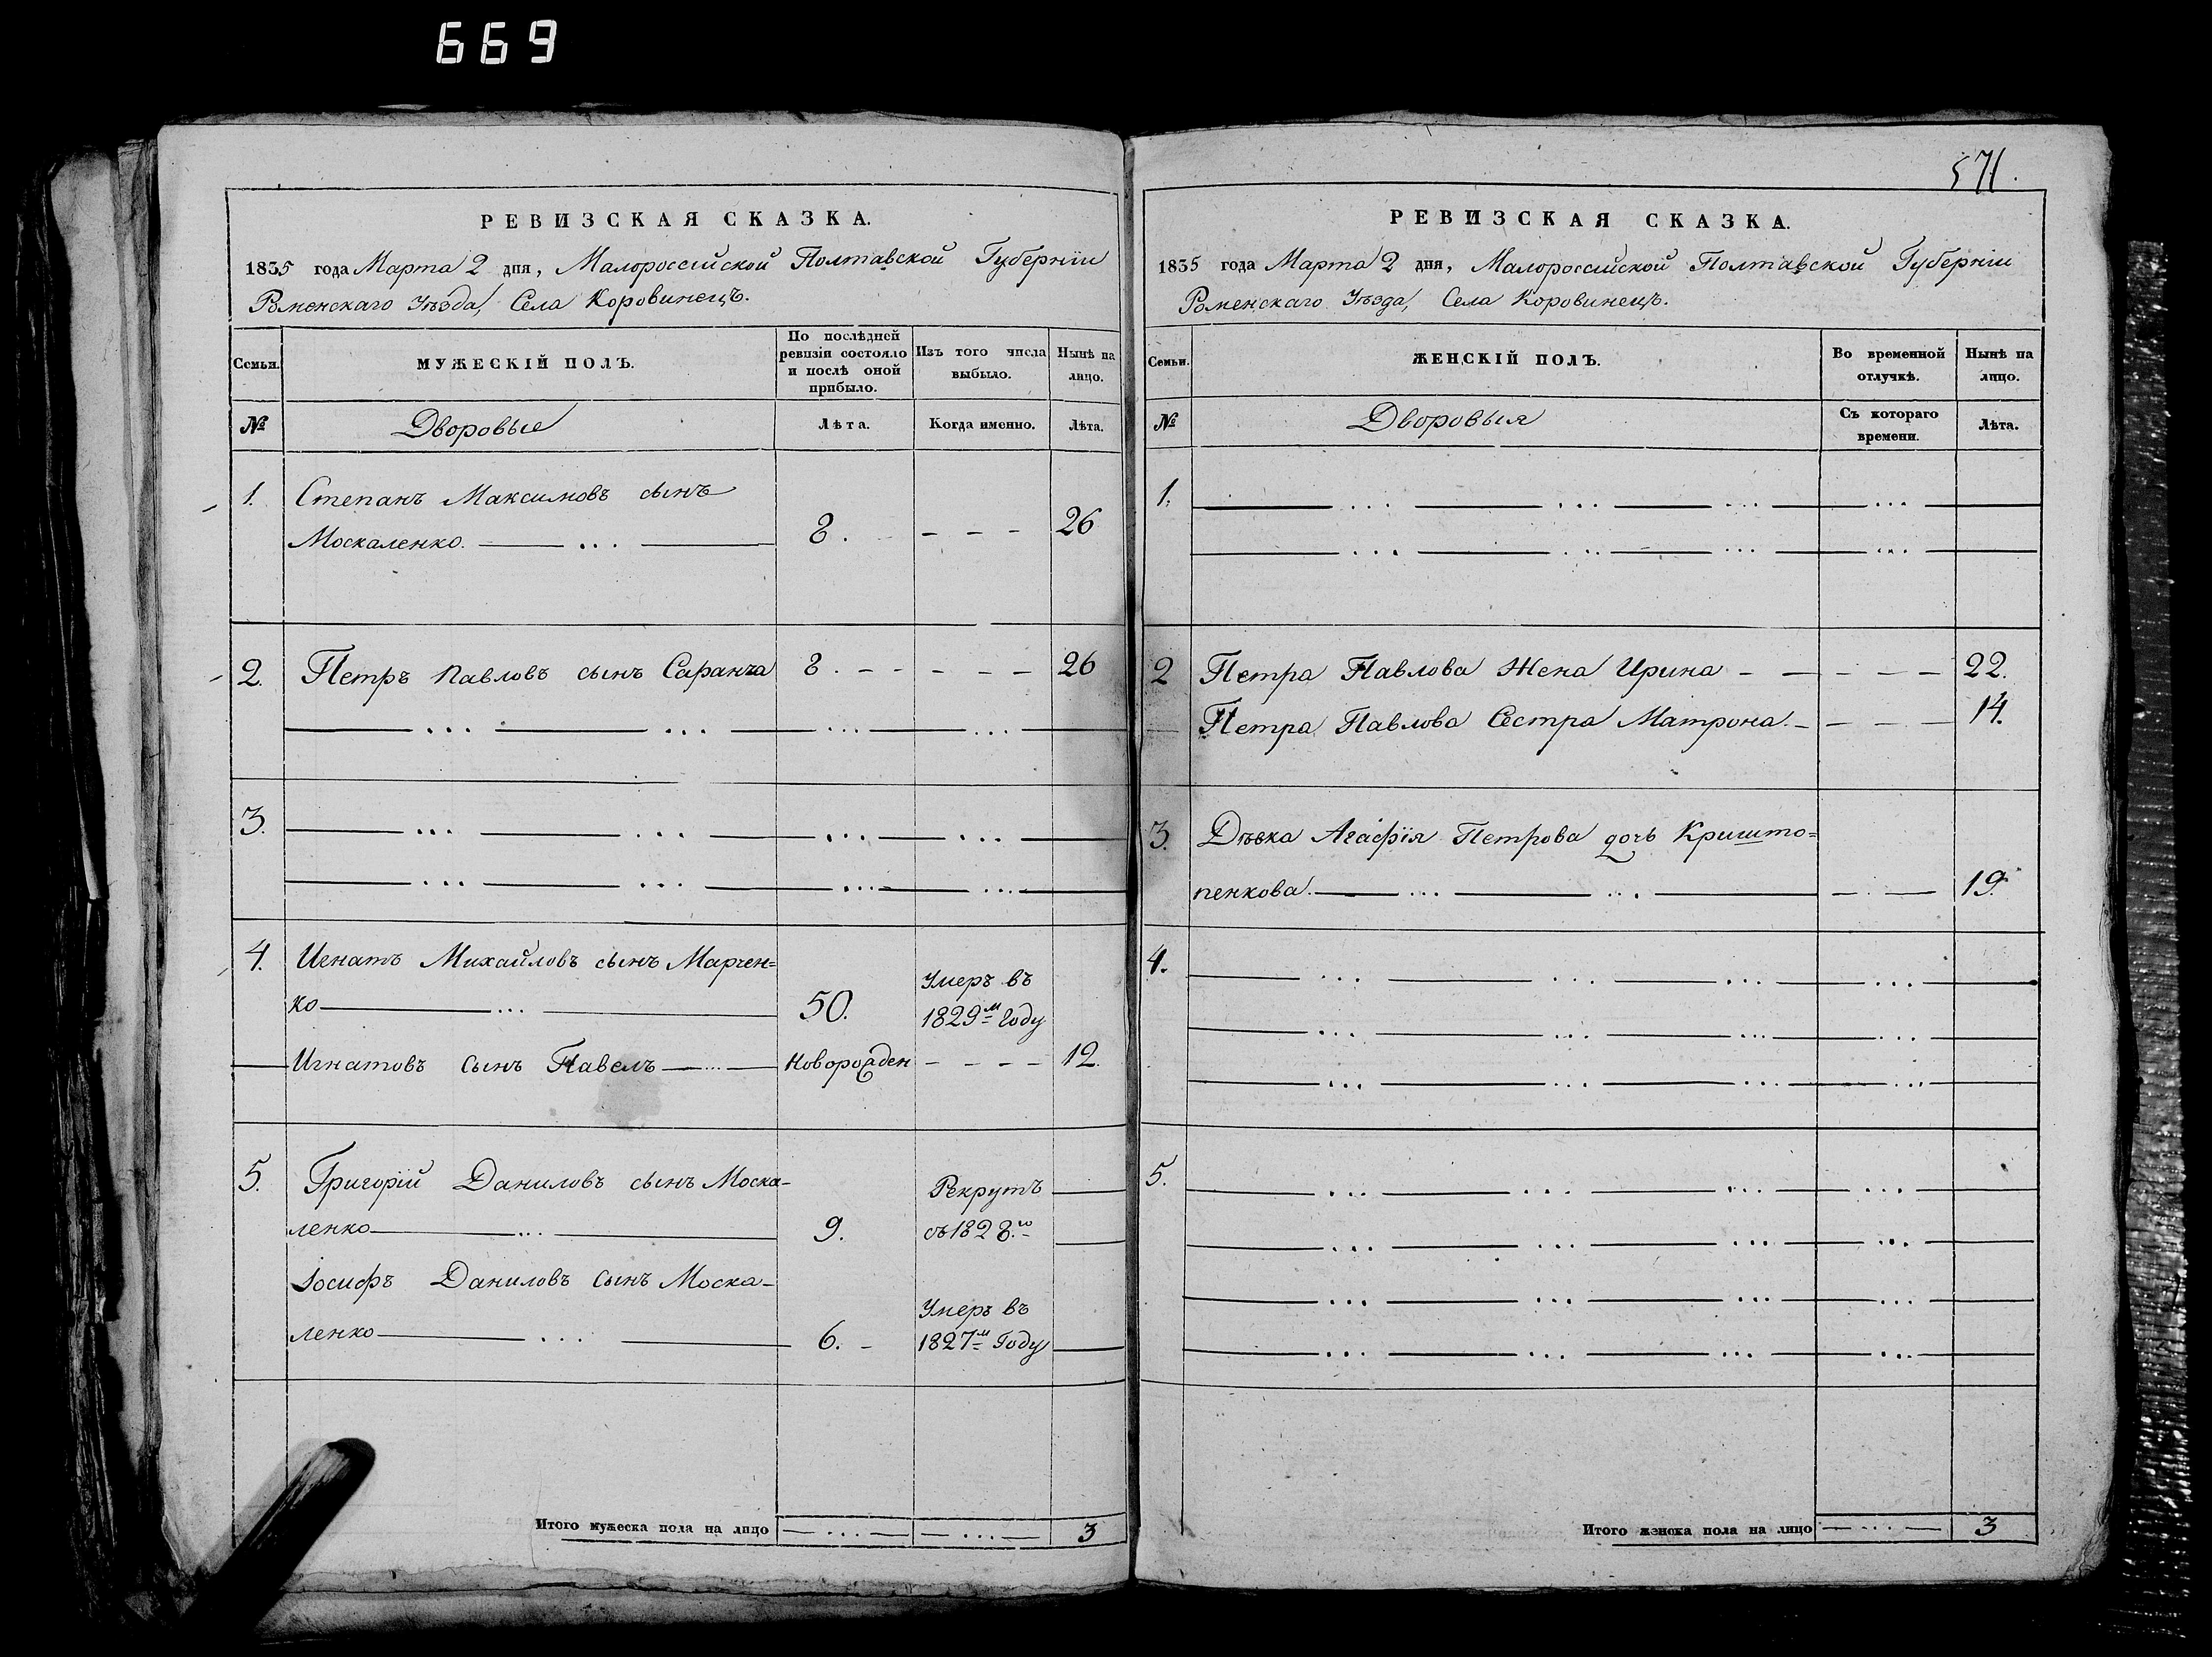 669
РЕВИЗСКАЯ СКАЗКА.
1835 года Марта 2 дня, Малороссійской Полтавской Губерніи
Роменскаго Уѣзда, Села Коровинецъ.
Семьи.
МУЖЕСКІЙ ПОЛЪ.
По послѣдней
ревизіи состояло
и послѣ оной
прибыло.
Изъ того числа
выбыло.
Нынѣ на
лицо.
№
Дворовые
Лѣта.
Когда именно.
Лѣта.
1. Степанъ Максимовъ сынъ
Москаленко. 8. 26
2. Петръ Павловъ сынъ Саранча 8. 26
3.
4. Игнатъ Михайловъ сынъ Марчен=
ко 50. Умеръ въ
1829м Году
Игнатовъ сынъ Павелъ Новорожден 12.
5. Григорій Даниловъ сынъ Моска-
ленко 9. Рекрутъ
съ 1828.го
Іосифъ Даниловъ сынъ Моска-
ленко 6. Умеръ въ
1827м Году
Итого мужеска пола на лицо 3
571.
РЕВИЗСКАЯ СКАЗКА.
1835 года Марта 2 дня, Малороссійской Полтавской Губерніи
Роменскаго Уѣзда, Села Коровинецъ.
Семьи.
ЖЕНСКІЙ ПОЛЪ.
Во временной
отлучкѣ.
Нынѣ на
лицо.
№
Дворовыя
Съ котораго
времени.
Лѣта.
1.
2 Петра Павлова Жена Ирина 22.
Петра Павлова Сестра Матрона. 14.
3. Дѣвка Агафія Петрова дочь Кришто=
пенкова. 19.
4.
5.
Итого женска пола на лицо 3